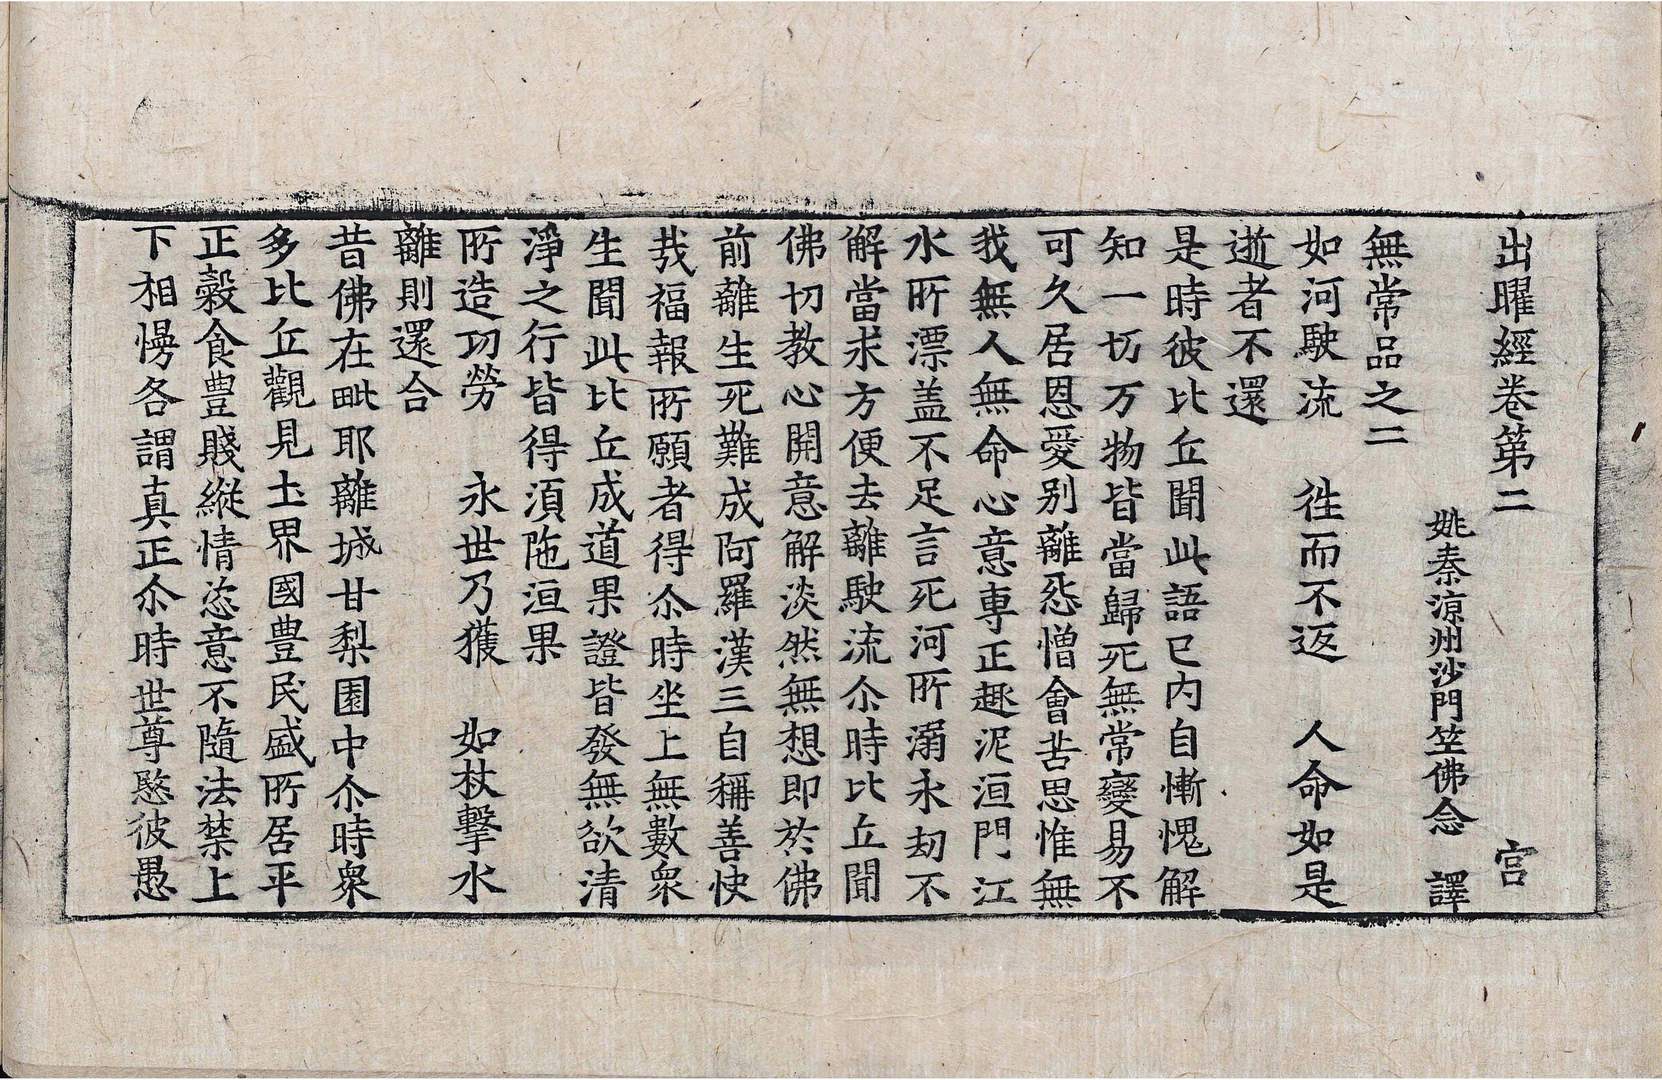 出曜經卷第二 宫
姚秦涼州沙門竺佛念 譯
無常品之二
如河駛流 徃而不返 人命如是
逝者不還
是時彼比丘聞此語已內自慚愧解
知一切万物皆當歸死無常變易不
可久居恩愛别離怨憎會苦思惟無
我無人無命心意専正趣泥洹門江
水所漂盖不足言死河所溺永劫不
解當求方便去離駛流尒時比丘聞
佛切教心開意解淡然無想即於佛
前離生死難成阿羅漢三自稱善快
哉福報所願者得尒時坐上無數衆
生聞此比丘成道果證皆發無欲清
淨之行皆得須陁洹果
所造功勞 永世乃獲 如杖擊水
離則還合
昔佛在毗耶離城甘梨園中尒時衆
多比丘觀見土界國豊民盛所居平
正穀食豊賤縱情恣意不隨法禁上
下相慢各謂真正尒時世尊愍彼愚